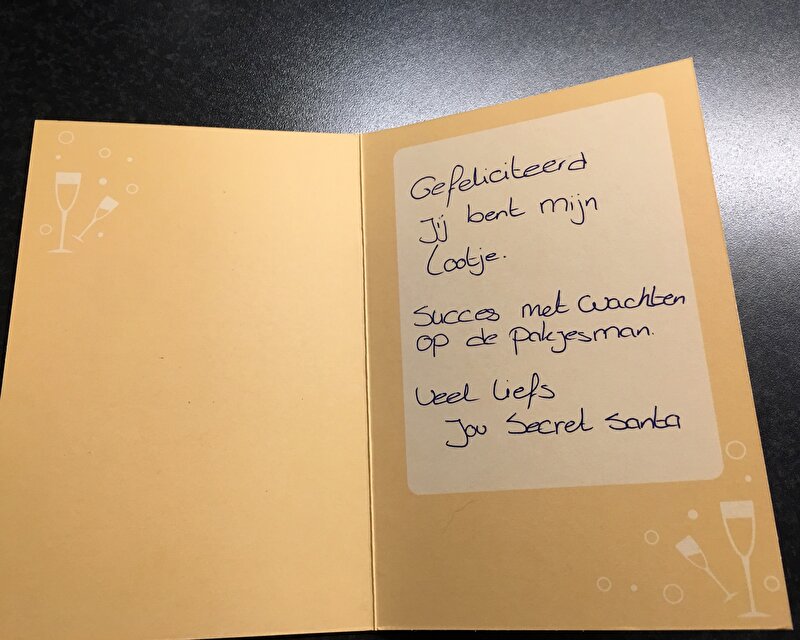 Gefeliciteerd
Jij bent mijn
Lootje.
Succes met wachten
op de pakjesman.
Veel liefs
Jou Secret Santa